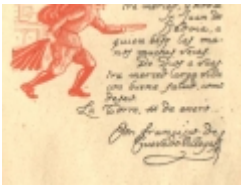 tra merced, y otra
so Juan de
a
quien beso las ma-
nos muchas veces.
De Dios a vues
tra merced larga vida
con buena salud, como
deseo.
La Torre, 11 de enero...
Don francisco de
Quevedo Villegas